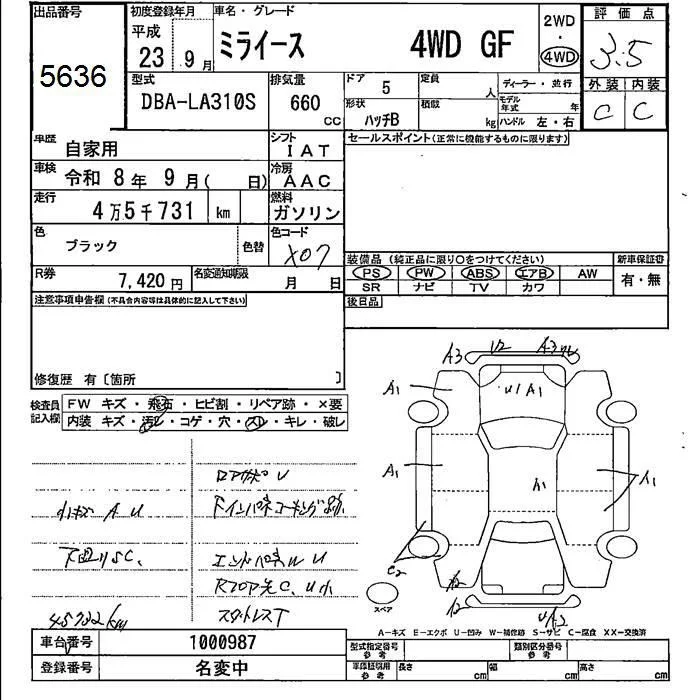 出品番号
5636
初度登録年月
平成
23 9月
車名・グレード
ミライース 4WD GF
2WD
・
4WD
評価点
3.5
外装 内装
C C
型式
DBA-LA310S
排気量
660
CC
ドア
5
定員
人
ディーラー・並行
形状
ハッチB
積載
kg
モデル年式 年
ハンドル 左・右
車歴
自家用
シフト
IAT
セールスポイント(正常に機能するものに限ります)
車検
令和 8年 9月( 日)
冷房
AAC
走行
4万5千731 km
燃料
ガソリン
色
ブラック
色替
色コード
X07
装備品(純正品に限り○をつけてください)
新車保証書
PS PW ABS エアB AW
有・無
SR ナビ TV カワ
R券
7,420円
名変通知期限
月 日
後日品
注意事項申告欄(不具合内容等は具体的に記入して下さい)
修復歴 有〔箇所 〕
検査員記入欄
FW キズ・飛石・ヒビ割・リペア跡・×要
内装 キズ・汚レ・コゲ・穴・スレ・キレ・破レ
ロアサポU
小キズ A U
下廻りSC.
エンドパネルU
45722km
スタットレスT
A3 U2 A3
A1 U1 A1
A1 A1 A1
C2
A2
スペア
A2 U A2
A-キズ E-エクボ U-凹み W-補修跡 S-サビ C-腐食 XX-交換済
車台番号
1000987
登録番号
名変中
型式指定番号
参考
類別区分番号
参考
車庫証明用
参考
長さ cm
幅 cm
高さ cm